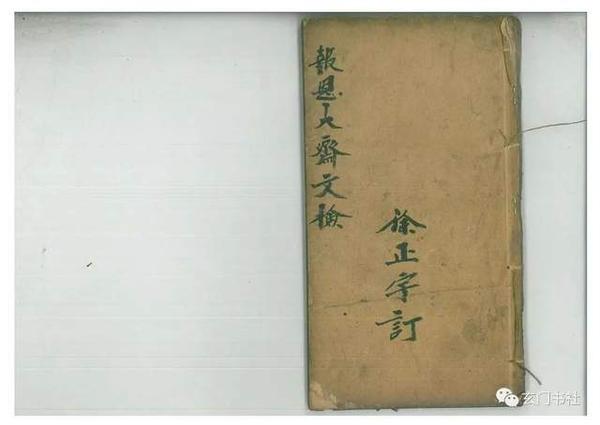 報恩大齋文檢
徐正字訂
玄门书社